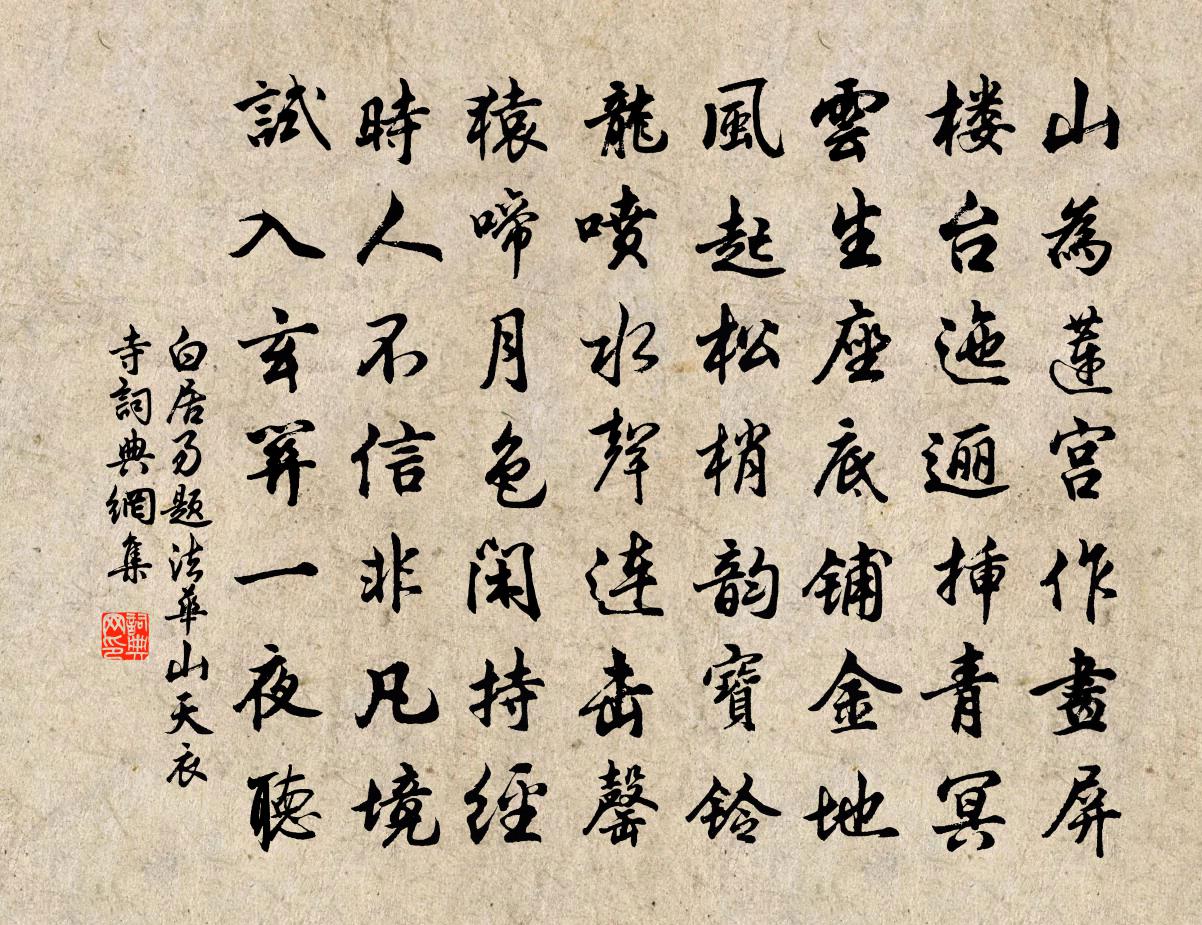 山為蓮宮作畫屏
楼台迤逦挿青冥
雲生座底铺金地
風起松梢韵寶鈴
龍喷水聲連击罄
猿啼月色闲持經
時人不信非凡境
試入玄関一夜聽
白居易题法華山天衣
寺詞典網集
詞典
网印